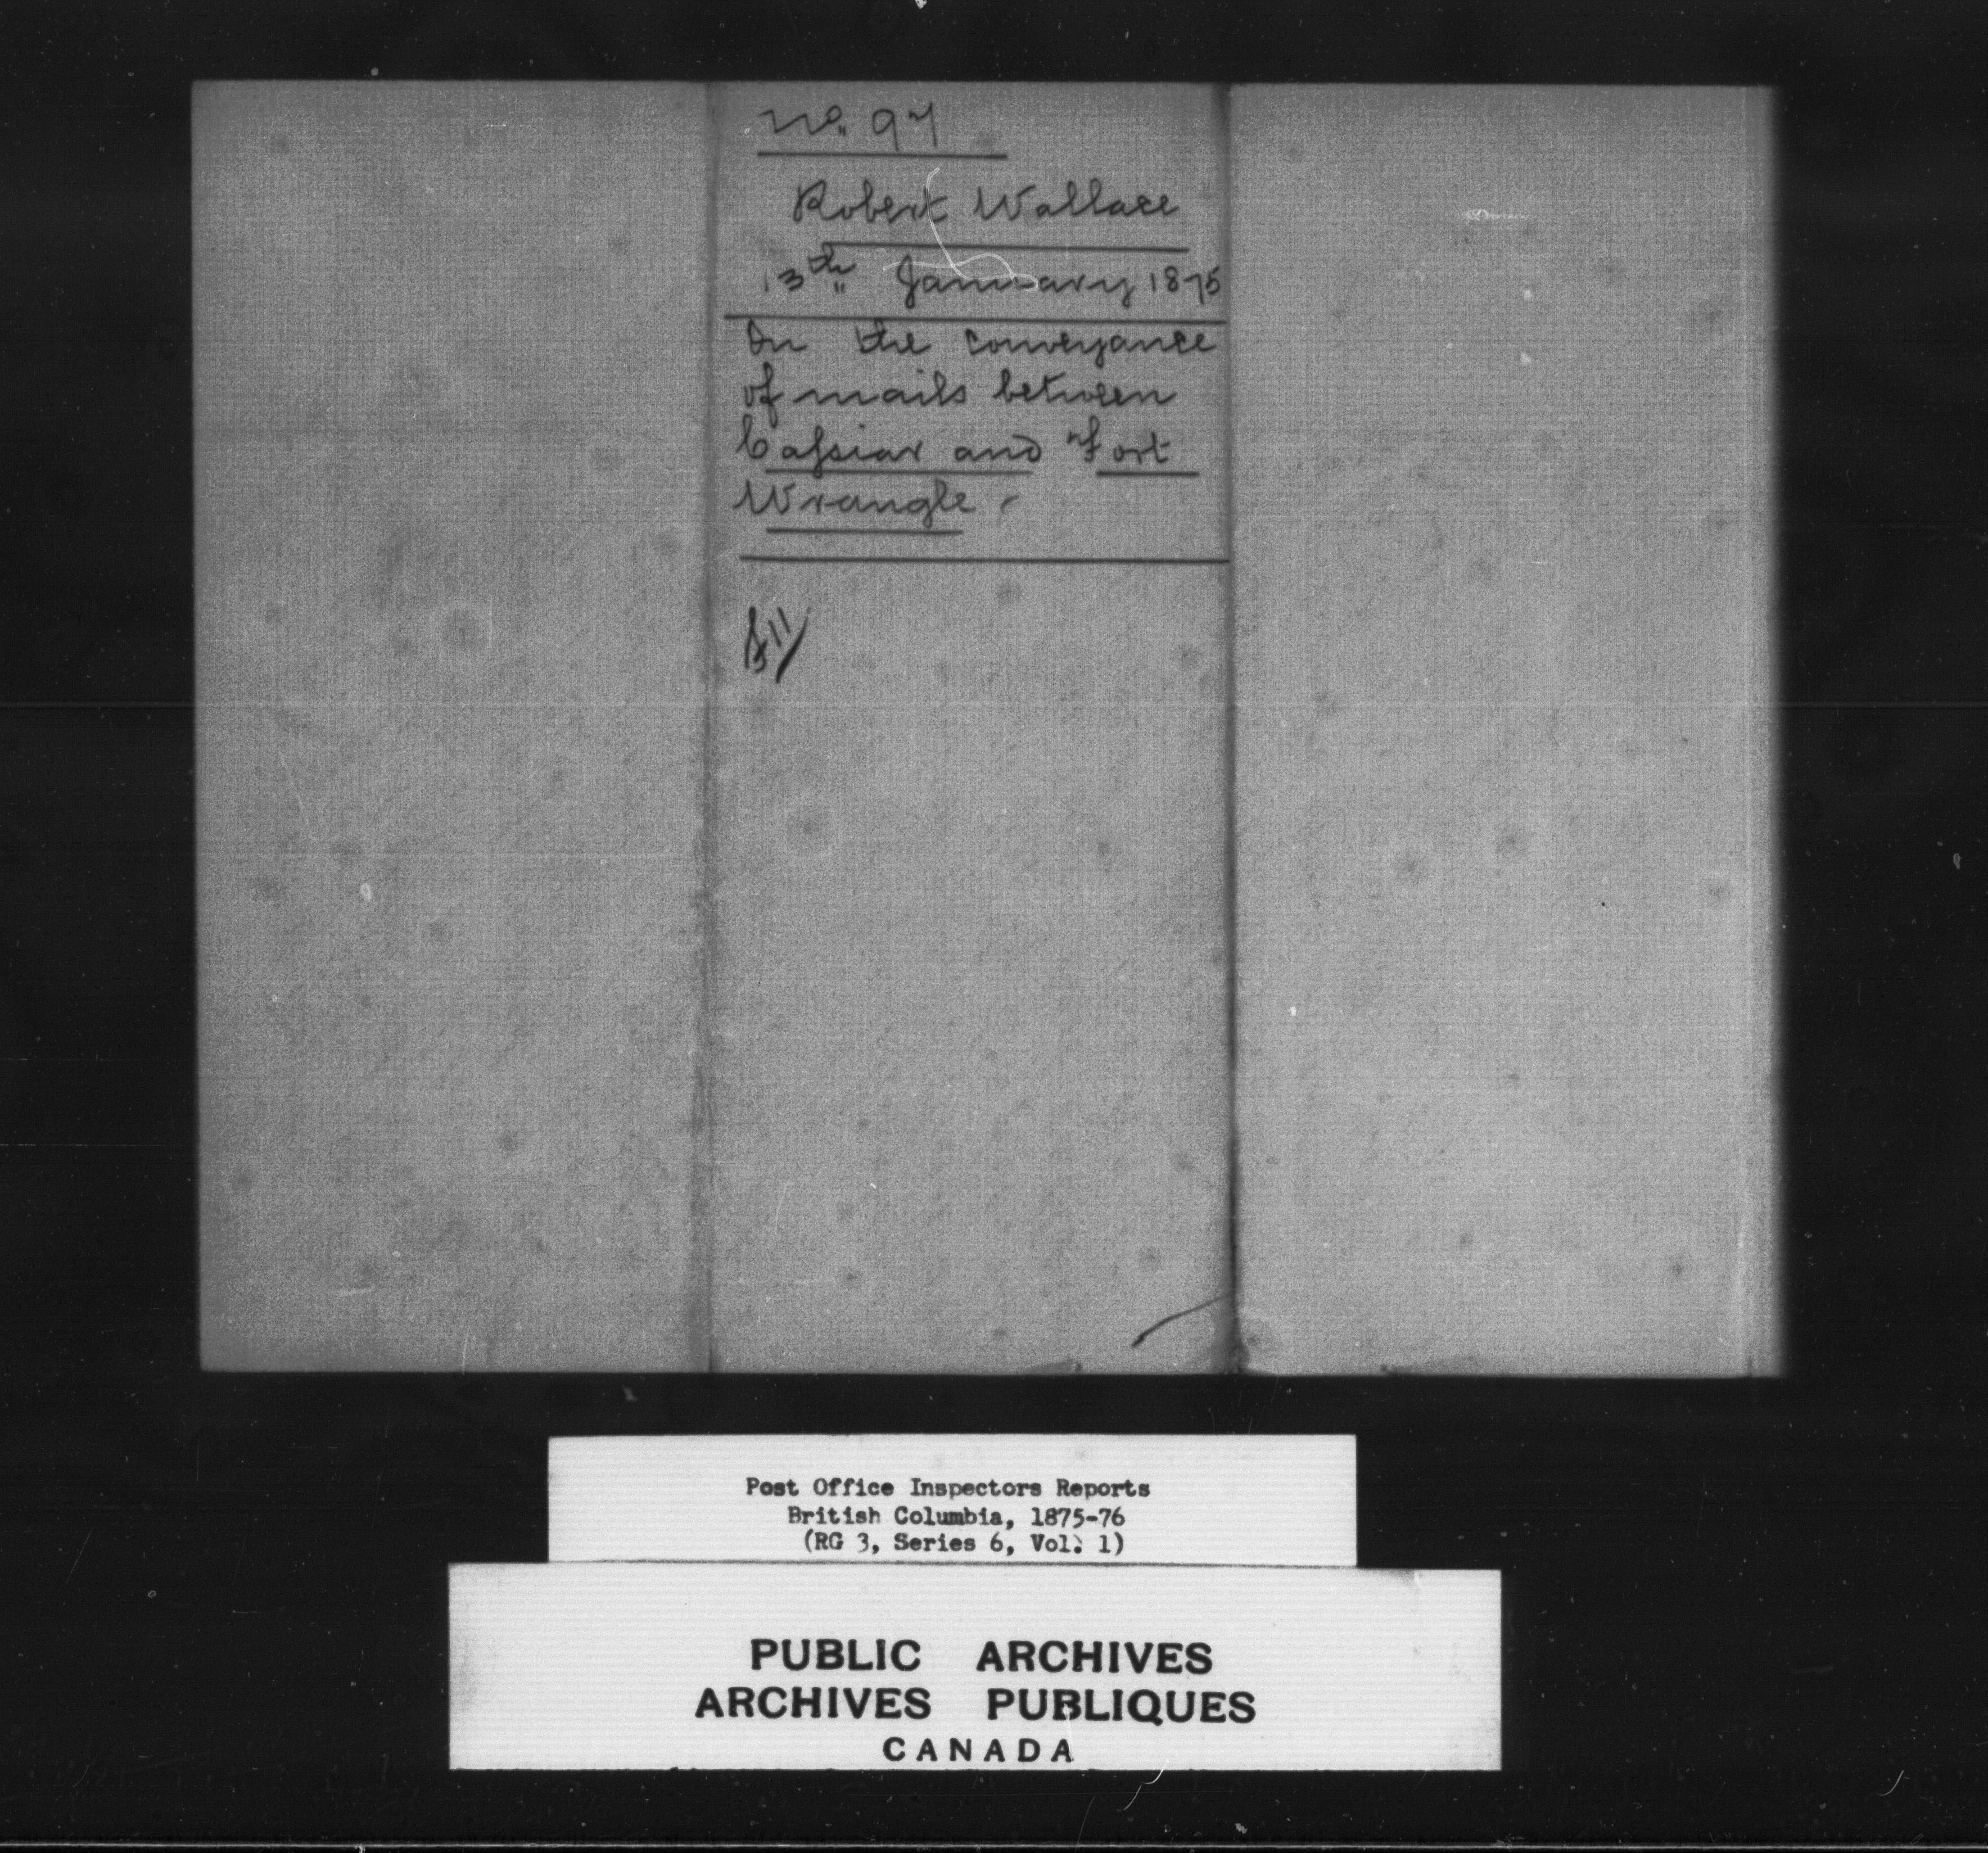 No. 97
Robert Wallace
13th January 1875
On the conveyance
of mails between
Cassiar and Fort
Wrangle
Post Office Inspectors Reports
British Columbia, 1875-76
(RG 3, Series 6, Vol. 1)
PUBLIC ARCHIVES
ARCHIVES PUBLIQUES
CANADA